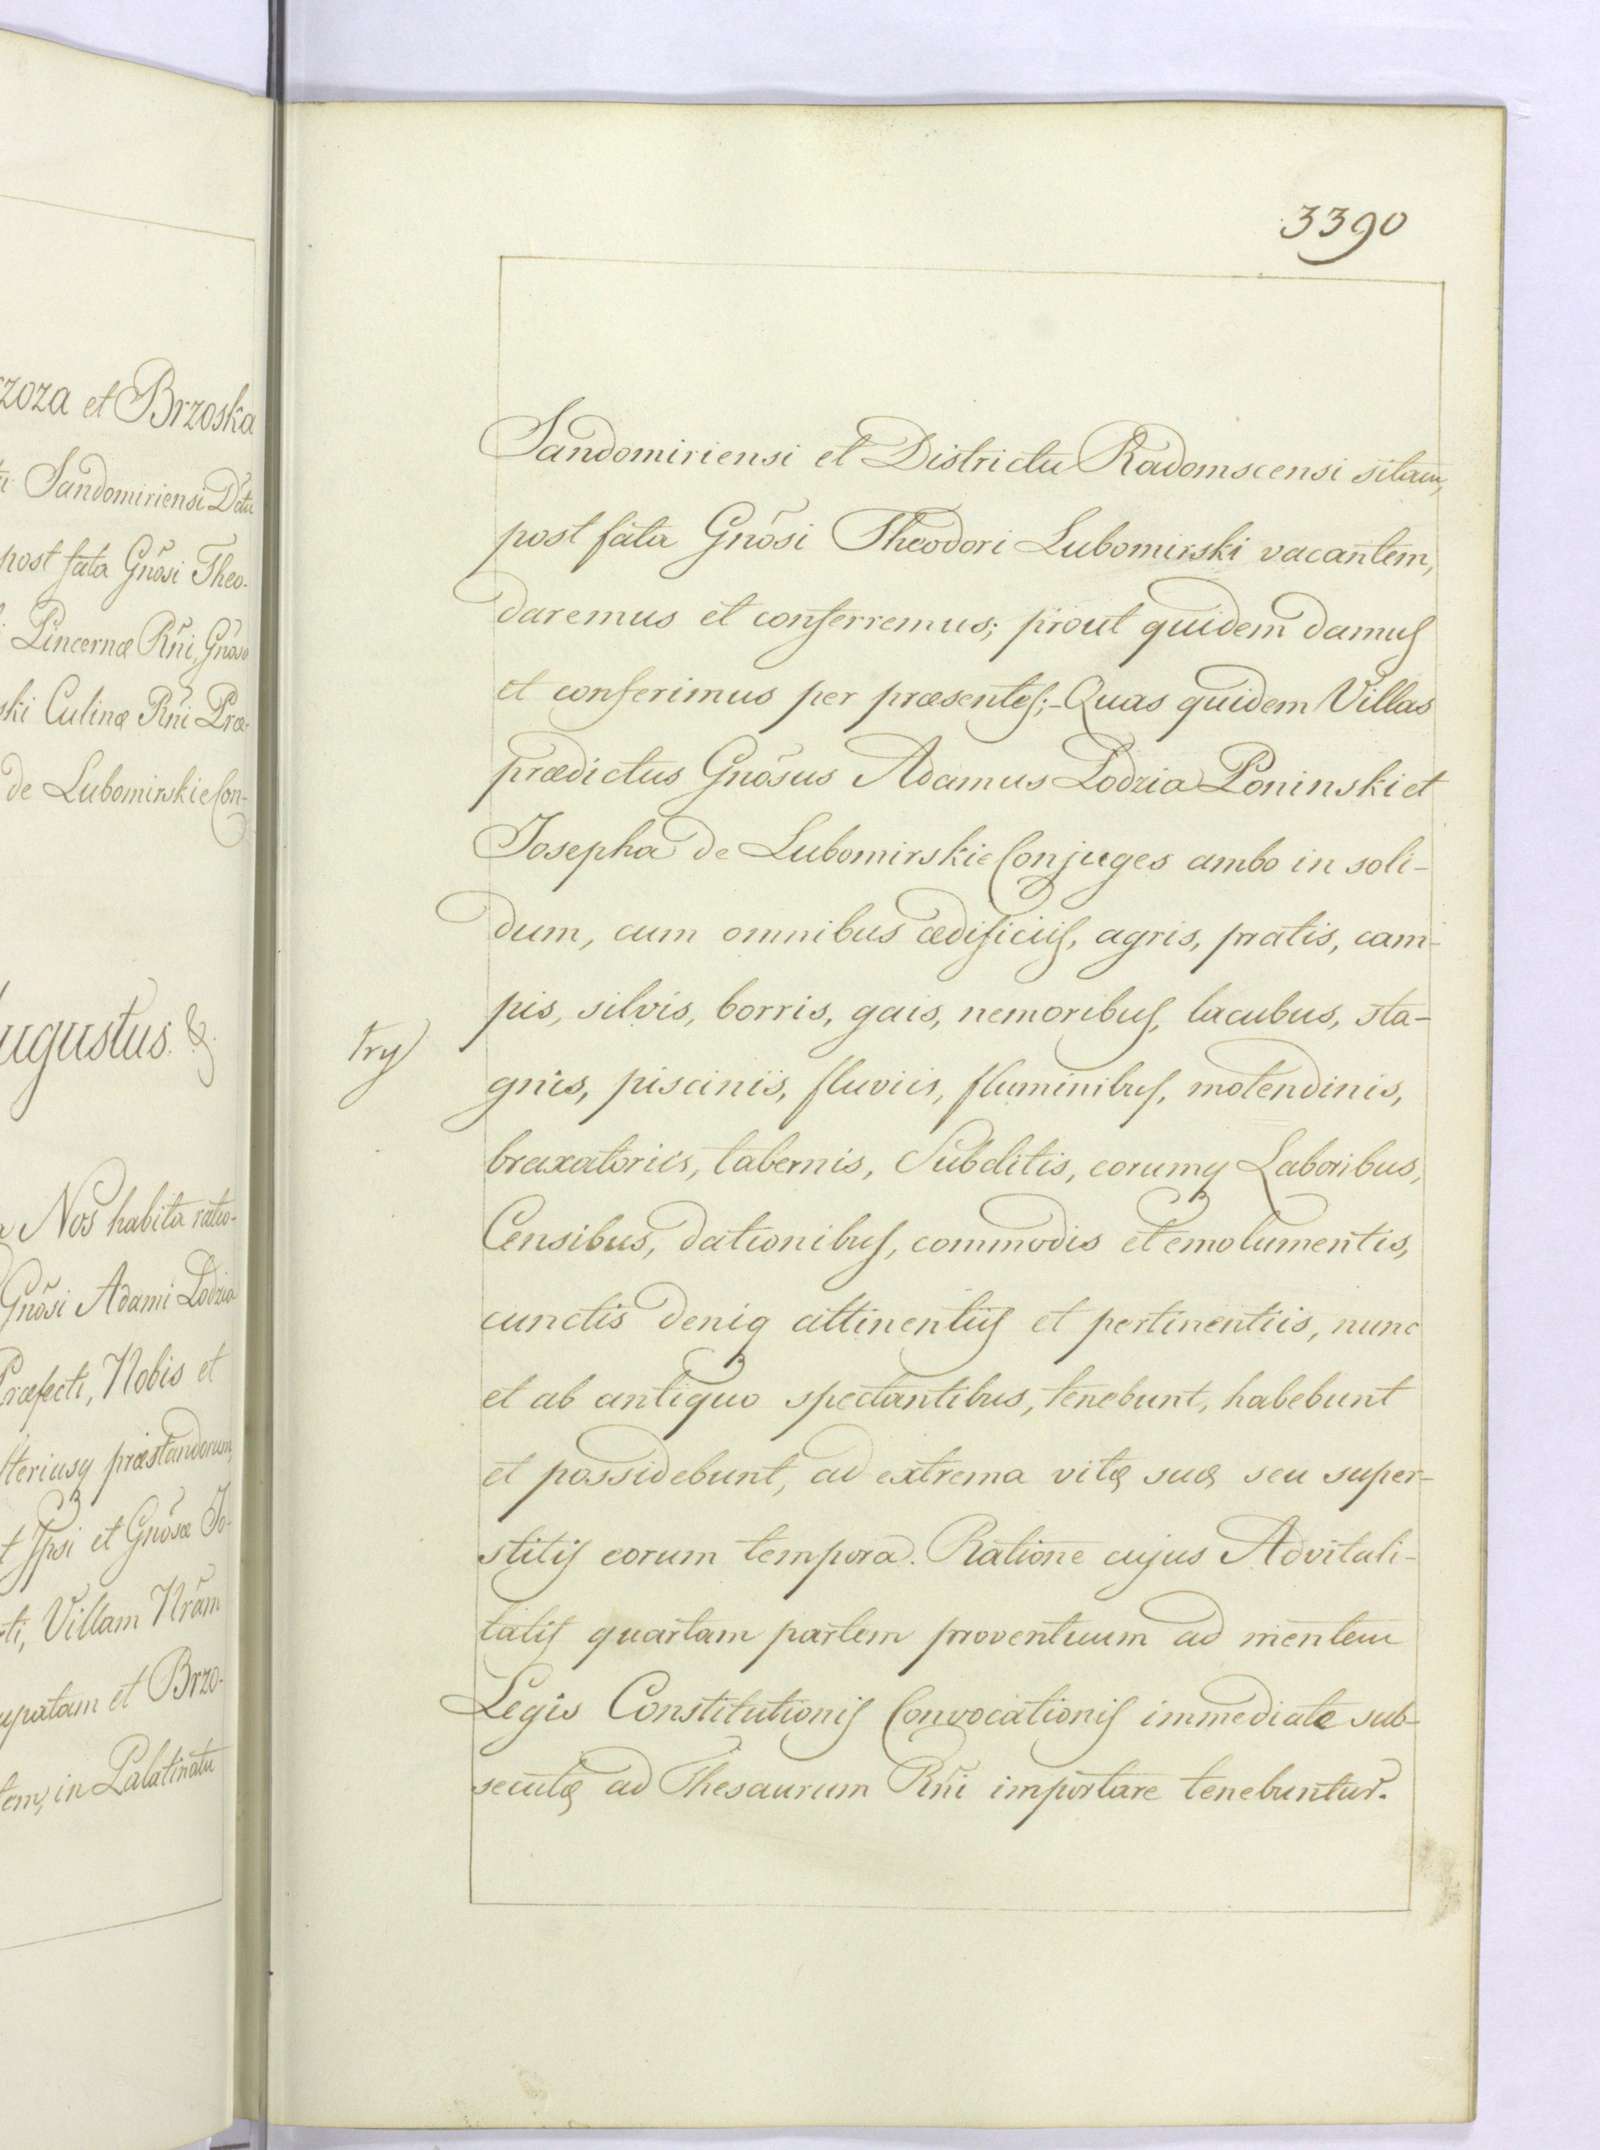 zoza et Brzoska
Sandomiriensi Dātu
post fata Gnōsi Theo-
Pincernæ Rñi, Gnōso
ski Culinæ Rñi Præ-
de Lubomirskie Con-
ugustus. &.
Nos habita ratio-
Gnōsi Adami Lodzia
Præfecti, Nobis et
teriusq præstandorum,
Ipsi et Gnōsæ Jo-
ti, Villam Nr̄am
upatam et Brzo-
tem, in Palatinatu
3390
Sandomiriensi et Districtu Radomscensi sitam,
post fata Gnōsi Theodori Lubomirski vacantem,
daremus et conferremus; prout quidem damus
et conferimus per præsentes;- Quas quidem Villas
prædictus Gnōsus Adamus Lodzia Poninski et
Josepha de Lubomirskie Conjuges ambo in soli-
dum, cum omnibus ædificiis, agris, pratis, cam-
pis, silvis, borris, gais, nemoribus, lacubus, sta-
try
gnis, piscinis, fluviis, fluminibus, molendinis,
braxatoriis, tabernis, Subditis, eorumq Laboribus,
Censibus, dationibus, commodis et emolumentis,
cunctis deniq attinentiis et pertinentiis, nunc
et ab antiquo spectantibus, tenebunt, habebunt
et possidebunt, ad extrema vitæ suæ seu super-
stitis eorum tempora. Ratione cujus Advitali-
tatis quartam partem proventuum ad mentem
Legis Constitutionis Convocationis immediate sub-
secutæ ad Thesaurum Rñi importare tenebuntur.